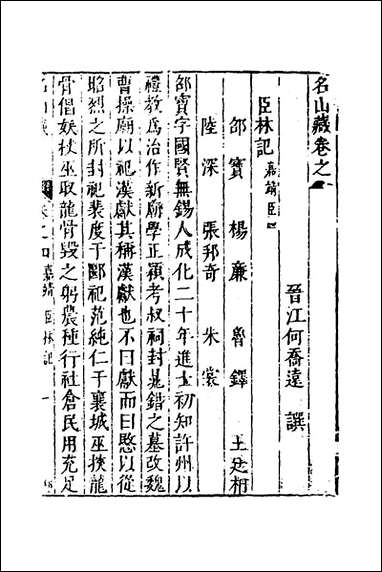 名山藏卷之
晉江何喬遠 譔
臣林記 嘉靖臣
邵寶 楊廉 魯鐸 王廷相
陸深 張邦奇 朱裳
邵寶字國賢無錫人成化二十年進士初知許州以
禮教爲治作新廟學正潁考叔祠封晁錯之墓改魏
曹操廟以祀漢獻其稱漢獻也不曰獻而曰愍以從
昭烈之所封祀裴度于郾祀范純仁于襄城巫挾龍
骨倡妖杖巫取龍骨毀之躬農種行社倉民用充足
嘉靖 臣林記 一